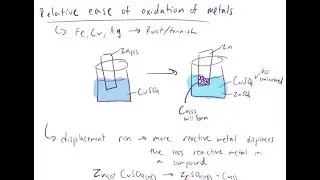 Relative ease of oxidation of metals
↳ Fe, Cu, Ag → Rust/tarnish
Zn(s)
Zn
CuSO4
CuSO4
less
concentrated
ZnSO4
Cu(s)
will form
↳ displacement rxn → more reactive metal displaces
the less reactive metal in
a compound
Zn(s) CuSO4(aq) → ZnSO4(aq) + Cu(s)